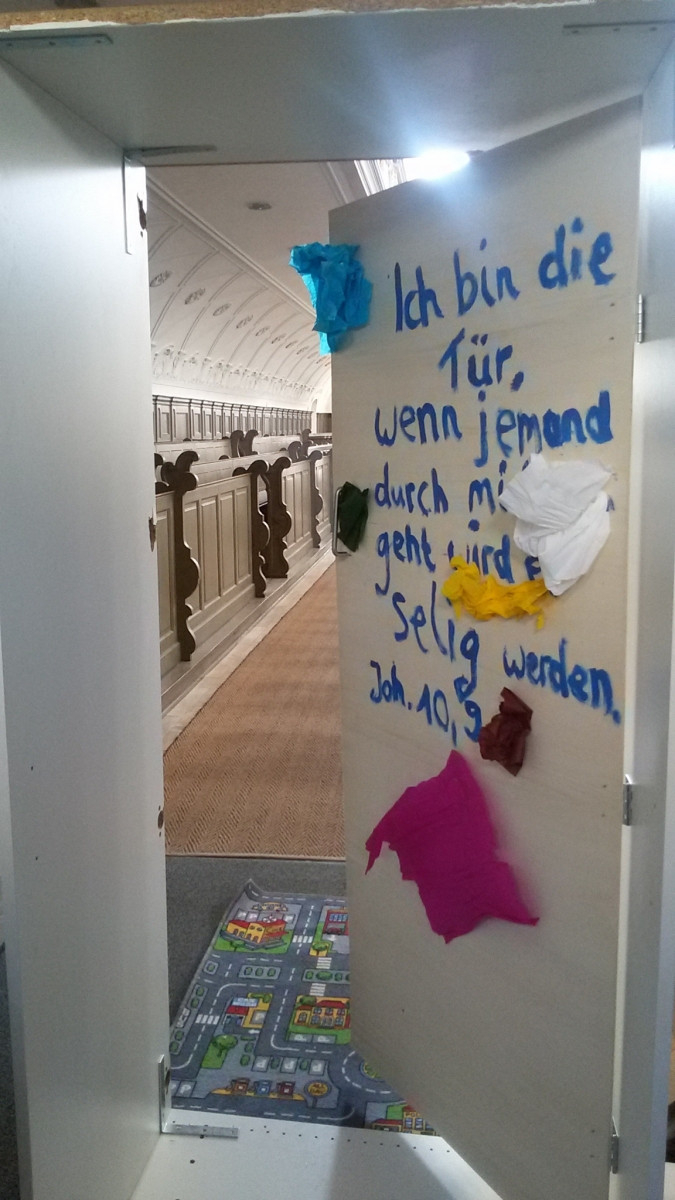 Ich bin die
Tür,
wenn jemand
durch
geht wird
selig werden.
Joh. 10,9